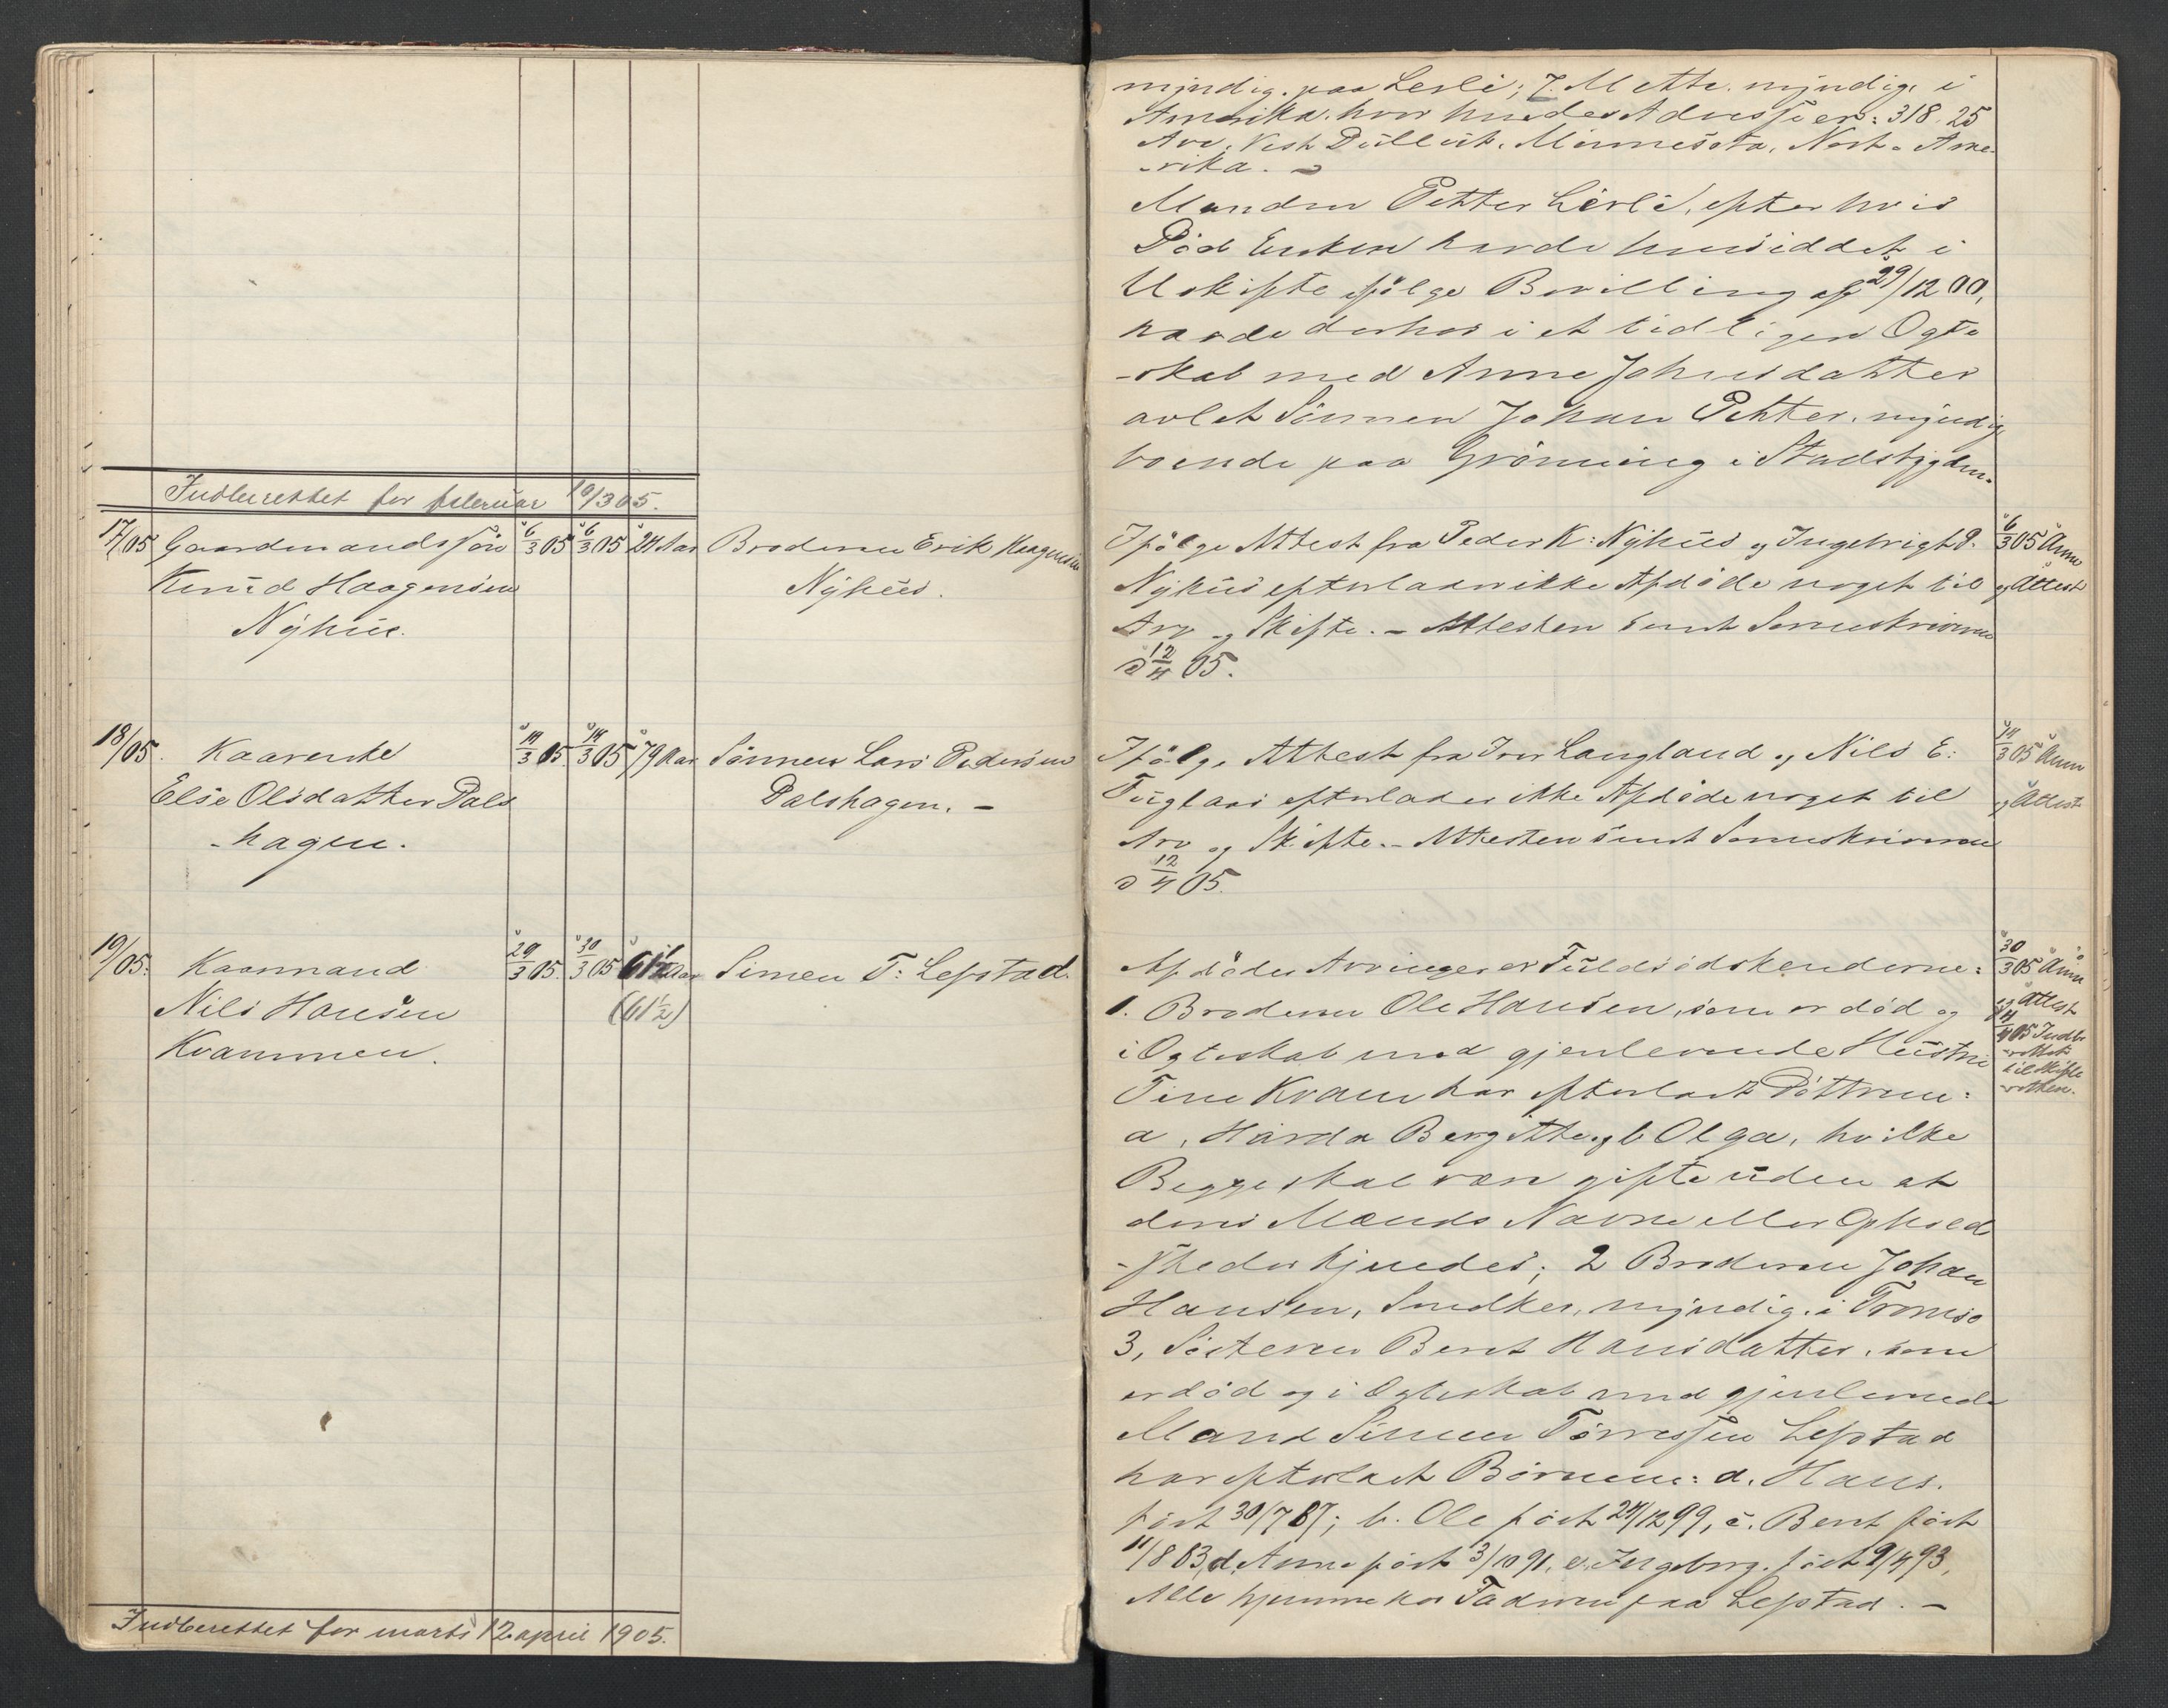 Indberettet for februar 10/3 05.
17/05 Gaardmandssøn 6/3 05 6/3 05 24 Aar Broderen Erik Haagensen
Knud Haagensen Nyhus.
Nyhus.
18/05. Kaarenke 14/3 05 14/3 05 79 Aar Sønnen Lars Pedersen
Else Olsdatter Dals Dalshagen. -
-hagen.
19/05. Kaarmand 29/3 05. 30/3 05 61½ Aar Simen T: Lefstad.
Nils Hansen (61½)
Kvammen.
Indberettet for marts 12 april 1905.
myndig. paa Lerli; 7. Mette. myndig. i
Amerika. hvor hendes Adresse er: 318. 25
Ave. Vest Dullut. Minnesota, Nort. Ame-
-rika. -
Manden Petter Lerli, efter hvis
Død Enken havde hensiddet i
Uskifte ifølge Bevilling af 29/12 00,
havde derhos i et tidligere Ægte
-skab med Anne Johnsdatter
avlet Sønnen Johan Petter. myndig,
boende paa Grønning i Stadsbygden.
Ifølge Attest fra Peder K: Nyhus og Ingebrigt O. 6/3 05 Anm
Nyhus efterlader ikke Afdøde noget til og Attest
Arv og Skifte. - Attesten sendt Sorenskriveren
d 12/4 05.
Ifølge Attest fra Iver Langland og Nils E: 14/3 05 Anm
Fuglaas efterlader ikke Afdøde noget til og Attest
Arv og Skifte. - Attesten sendt Sorenskriveren
d 12/4 05.
Afdødes Arvinger er Fuldsødskenderne: 30/3 05 Anm
1. Broderen Ole Hansen, som er død og og Attest
i Ægteskab med gjenlevende Hustru 4/4 05 Indbe
-rettet
Tine Kvam har efterladt Døttrene: til Skifte
-retten.
a, Harda Bergitte og b Olga, hvilke
Begge skal være gifte uden at
deres Mænds Navne eller Ophold
-ssteder kjendes; 2 Broderen Johan
Hansen, Snedker, myndig. i Tromsø
3, Søsteren Berit Hansdatter, som
er død og i Ægteskab med gjenlevende
Mand Simen Tørressen Lefstad
har efterladt Børnene: a. Hans.
født 30/7 87; b. Ole født 24/12 99, c. Berit født
11/8 83, d, Anna født 3/10 91. e. Ingeborg. født 9/4 93,
Alle hjemme hos Faderen paa Lefstad. -